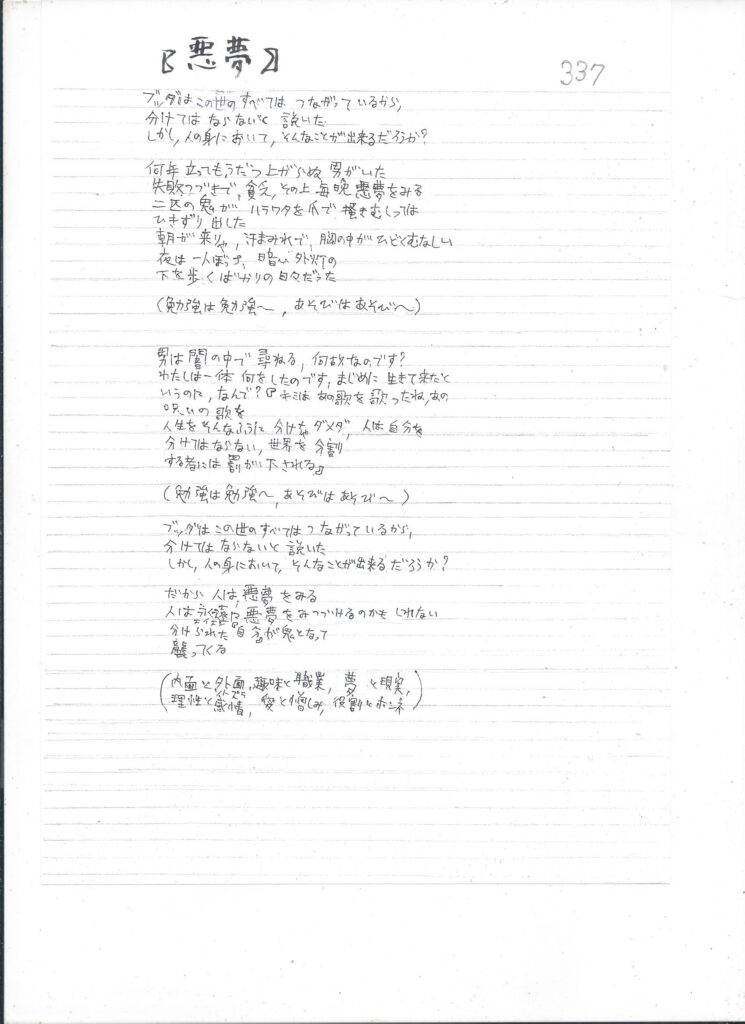 【悪夢】
337
ブッダはこの世のすべては つながっているから,
分けては ならないと 説いた
しかし, 人の身において, そんなことが出来るだろうか?
何年立ってもうだつ上がらぬ 男がいた
失敗つづきで, 貧乏, その上 毎晩 悪夢をみる
二匹の鬼が ハラワタを爪で 掻きむしっては
ひきずり出した
朝が来りゃ, 汗まみれで, 胸の中がひどくむなしい
夜は一人ぼっち, 暗い 外灯の
下を歩くばかりの日々だった
(勉強は勉強へ, あそびはあそびへ)
男は闇の中で 尋ねる, 何故なのです?
わたしは一体 何をしたのです, まじめに 生きて来たと
いうのに, なんで?『キミは あの歌を 歌ったね, あの
呪いの歌を
人生を そんなふうに 分けちゃダメダ, 人は自分を
分けてはならない, 世界を 分割
する者には 罰が下される』
(勉強は勉強へ, あそびはあそびへ)
ブッダはこの世のすべては つながっているから,
分けては ならないと 説いた
しかし, 人の身において, そんなことが出来るだろうか?
だから 人は, 悪夢をみる
人は永遠に悪夢をみつづけるのかもしれない
分けられた『自分』が鬼となって
襲ってくる
(内面と外面, 趣味と職業, 夢と現実,
理性と感情, 愛と憎しみ, 役割とホンネ)